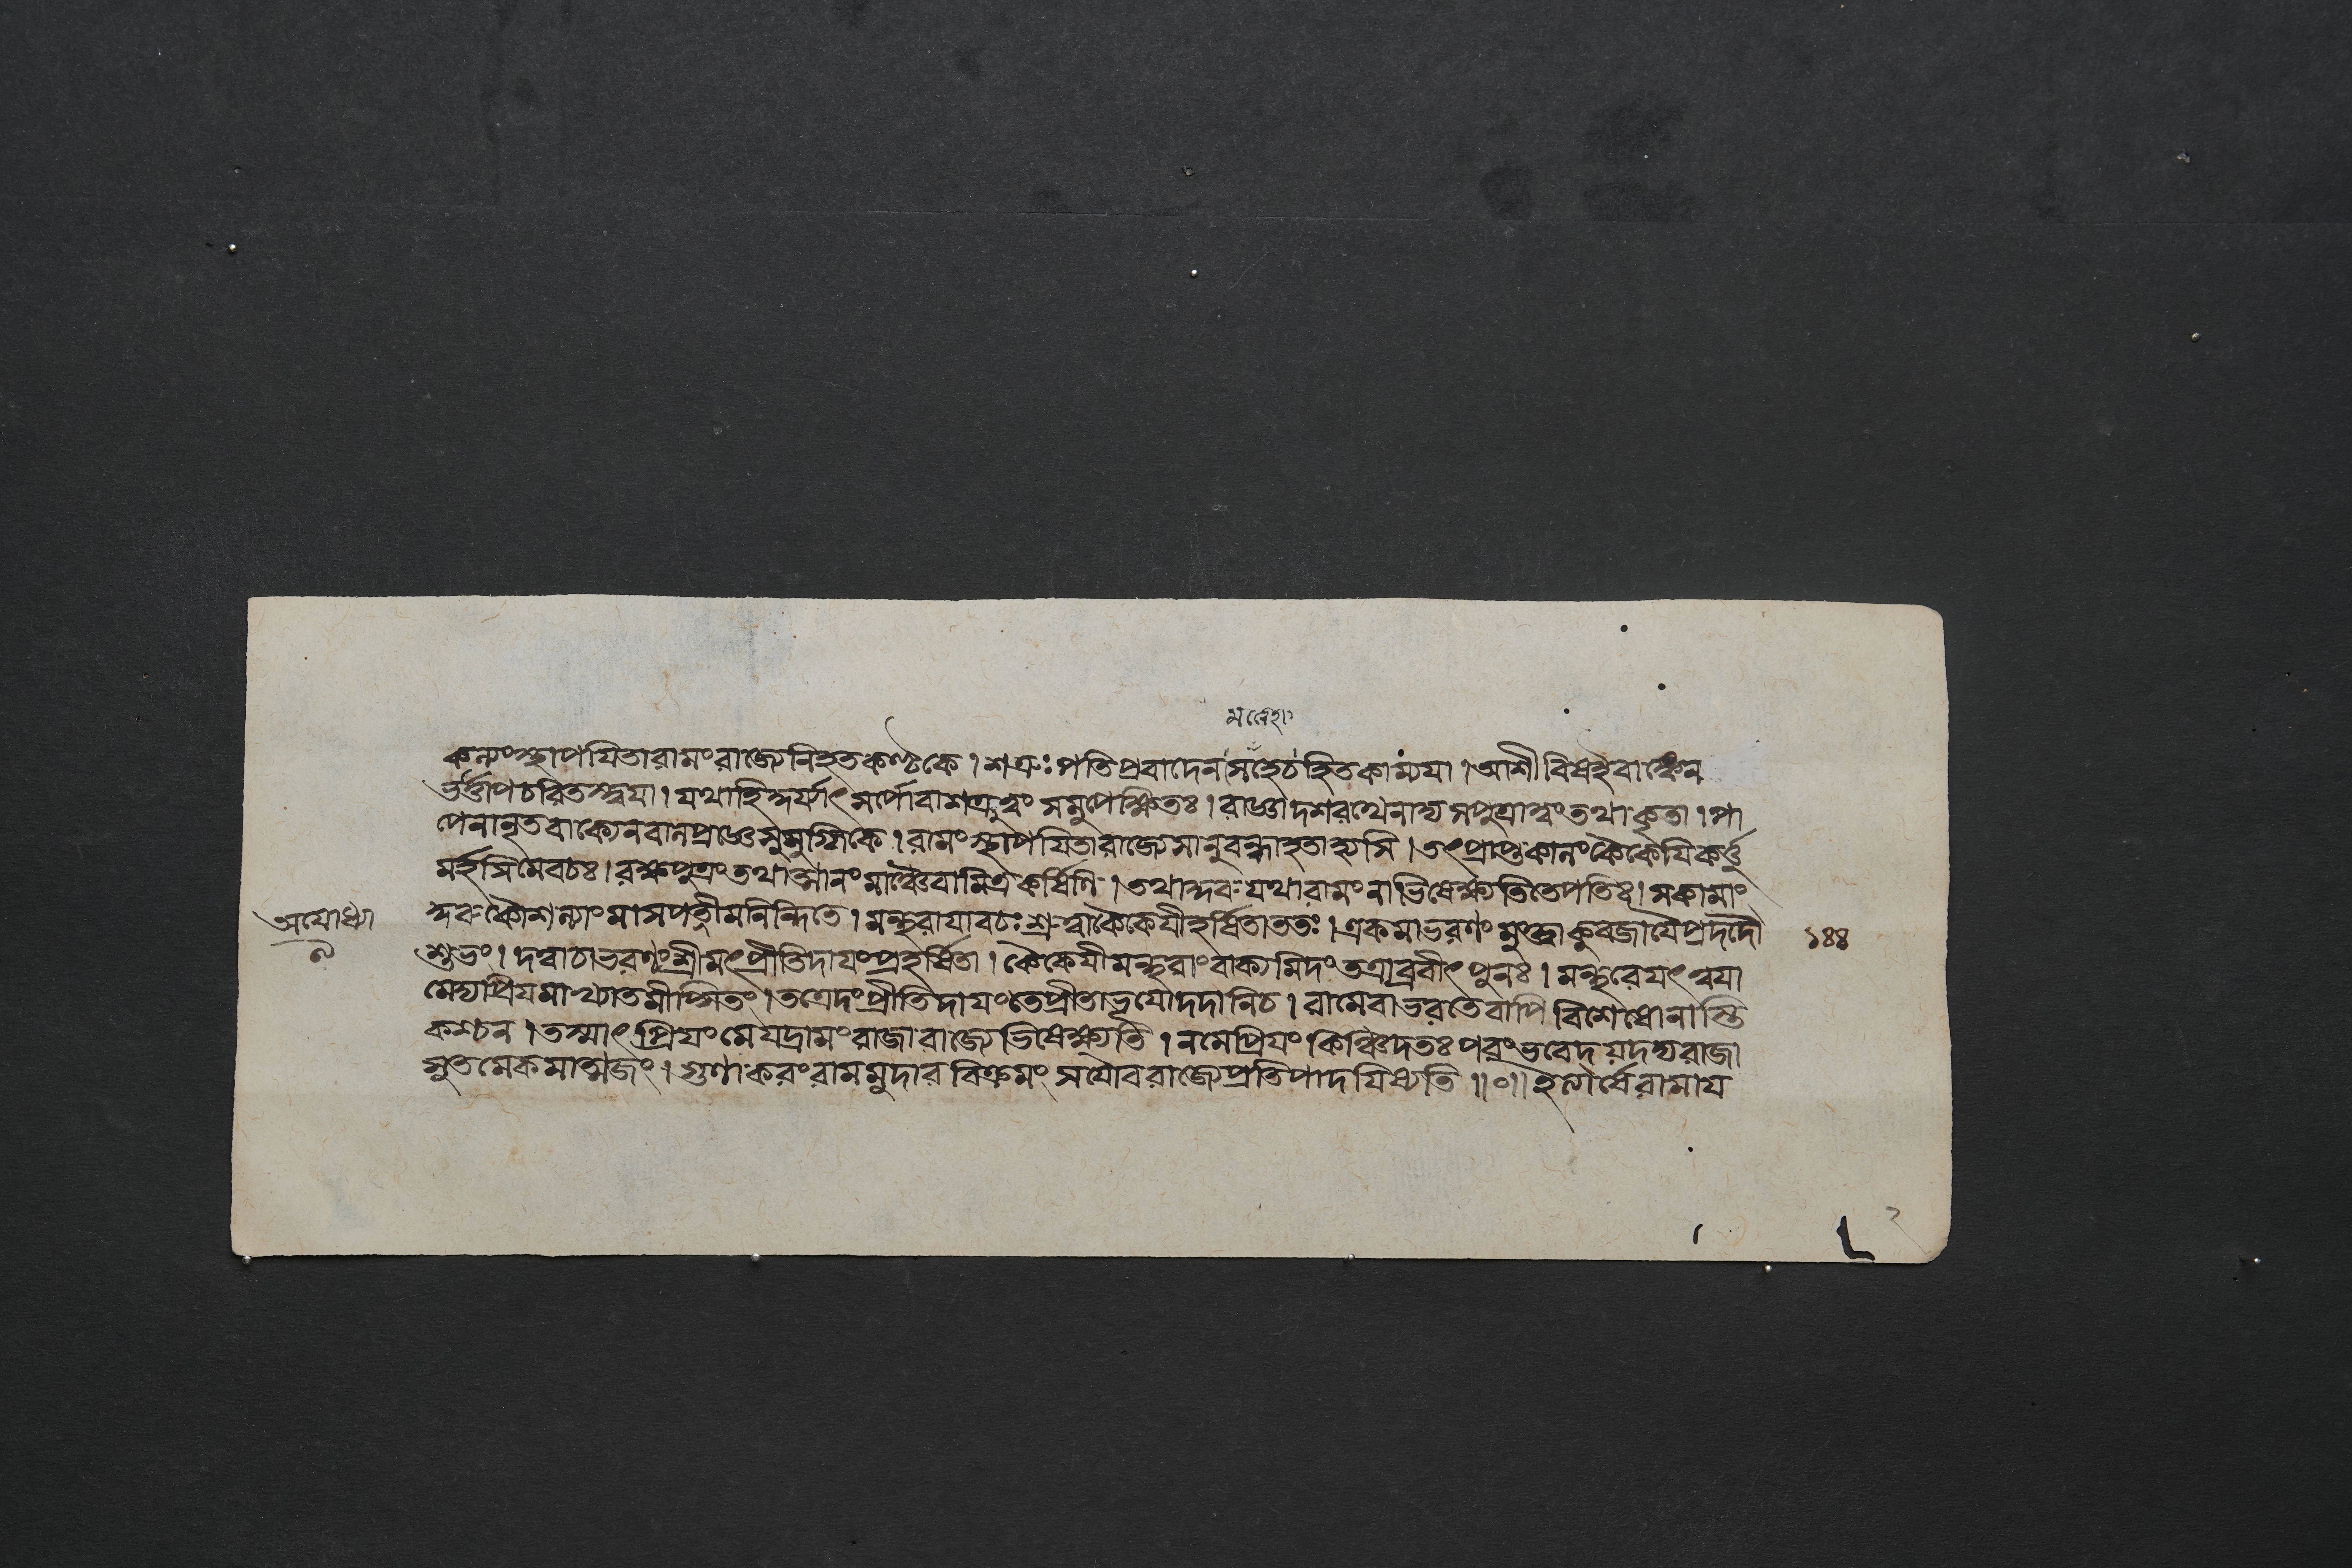 মনেহা
কল্যংস্থাপযিতারামংরাজ্যেনিহতকণ্টকে। শত্রুঃপতিপ্রবাদেনসহেচহিতকাম্যযা। আশীবিষইবাঙ্কেন
ভর্ত্তাপচরিতস্ত্বযা। যথাহি সর্পোবাশত্রুস্ত্বং সমুপেক্ষিতঃ। রাজ্ঞাদশরথেনাদ্যসপুত্রাত্বংতথাকৃতা। পা
পেনানৃতবাক্যেনবাল রামংস্থাপযিতারাজ্যেসানুবন্ধাহতাহ্যসি। তৎপ্রাপ্তকালংকৈকেযিকর্ত্তু
মর্হসিমেবচঃ। রক্ষপুত্রংতথাত্মানংমাঞ্চৈবামিত্রকর্ষিণি। তথাকুরুযথারামংনাভিষেক্ষ্যতিতেপতিঃ। সকামাং
কুরুকৌশল্যাংমাসপত্নীমনিন্দিতে। মন্থরাযাবচঃশ্রুত্বাকৈকেযীহর্ষিতাততঃ। একমাভরণংমুক্ত্বাকুবজাযৈপ্রদদৌ
অযোধ্যা
১৪৪
শুভং। দত্বাচাভরণংশ্রীমৎপ্রীতিদাযংপ্রহর্ষিতা। কৈকেযীমন্থরাংবাক্যমিদংতত্রাব্রবীৎপুনঃ। মন্থরেযৎত্বযা
মেদ্যপ্রিযমাখ্যাতমীপ্সিতং। তত্রেদংপ্রীতিদাযংতেপ্রীতাভূযোদদানিচ। রামেবাভরতেবাপিবিশেষোনাস্তি
কশ্চন। তস্মাৎপ্রিযংমেযদ্রামংরাজারাজ্যেভিষেক্ষ্যতি। নমেপ্রিযংকিঞ্চিদতঃপরংভবেদযদদ্যরাজা
সুতমেকমাত্মজং। গুণাকরংরামমুদারবিক্রমংসযৌবরাজ্যেপ্রতিপাদযিষ্যতি॥০॥ইত্যার্ষেরামায